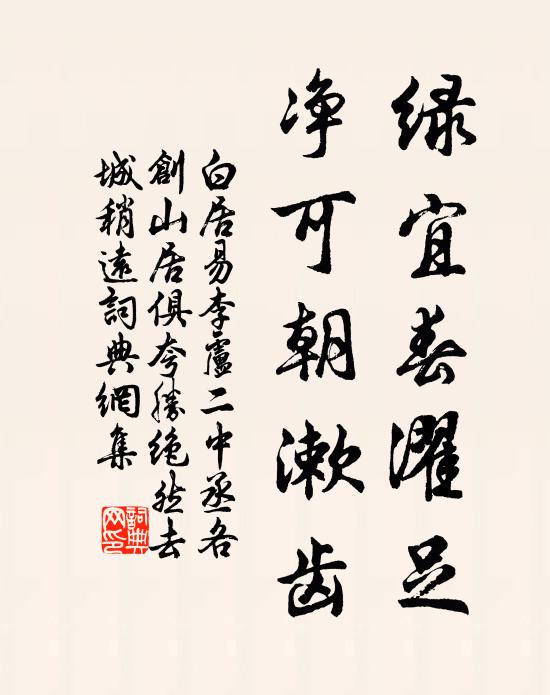 绿宜春濯足
净可朝漱齿
白居易李廬二中丞各
創山居俱夸勝絶然去
城稍遠詞典網集
詞典
网印